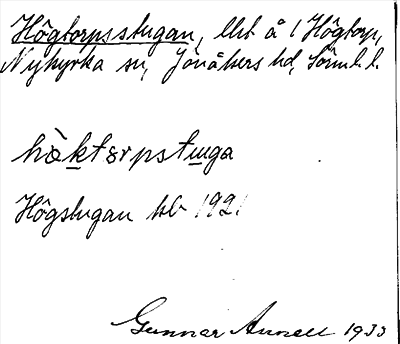 Högtorpsstugan, lht å 1 Högtorp,
Nykyrka sn, Jönåkers hd, Sörml. l.
hòktorpstuga
Högstugan kb 1921
Gunnar Arnell 1933